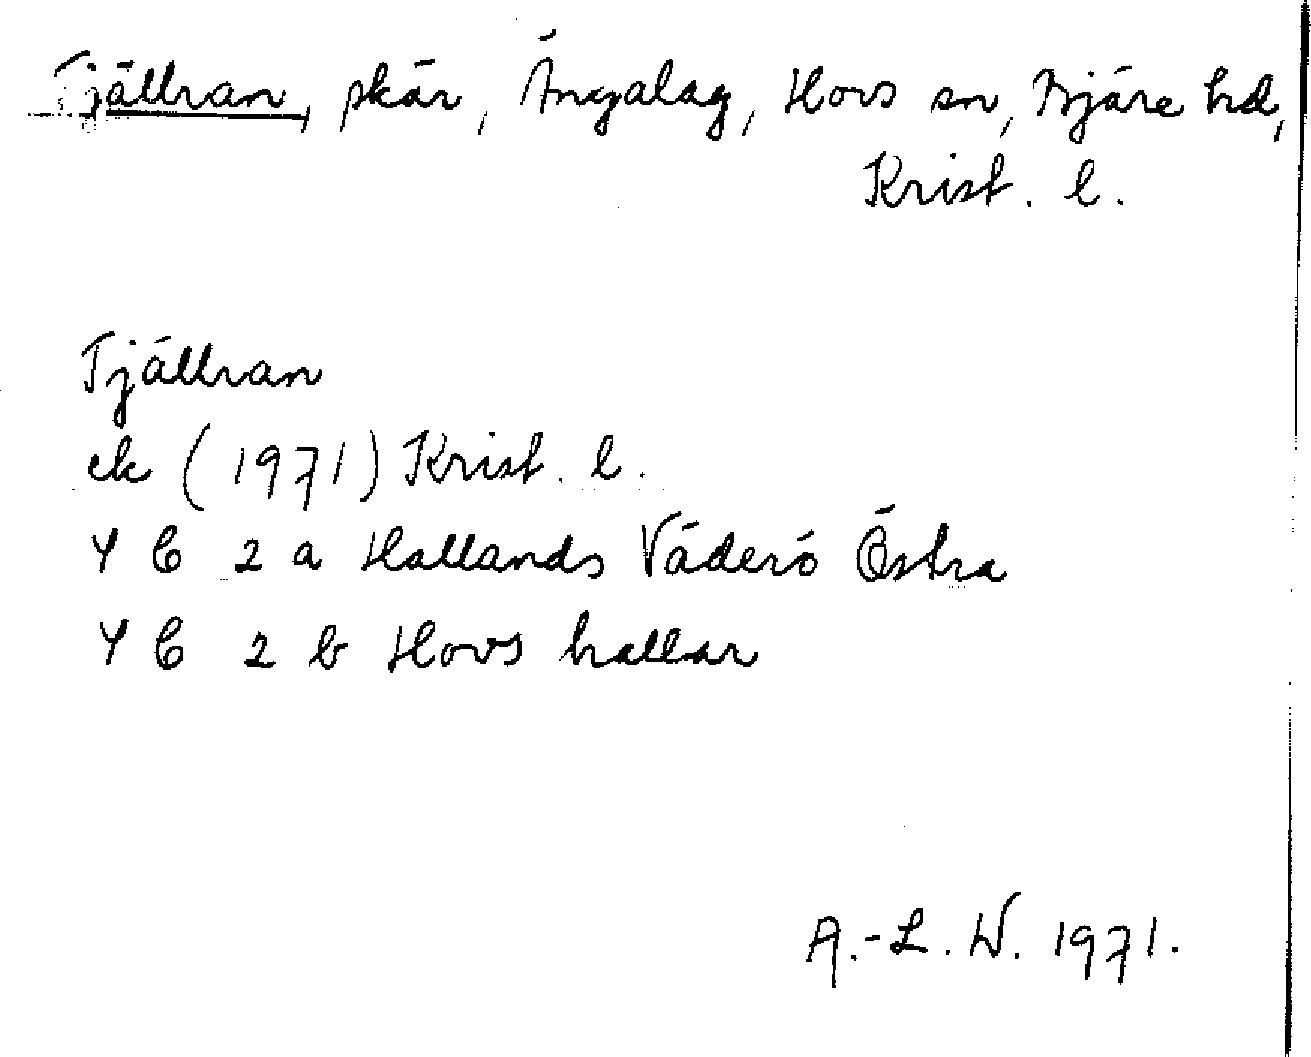 Tjällran, skär, Ängalag, Hovs sn, Bjäre hd,
Krist. l.
Tjällran
ek (1971) Krist. l.
4 C 2 a Hallands Väderö Östra
4 C 2 b Hovs hallar
A.-L. W. 1971.